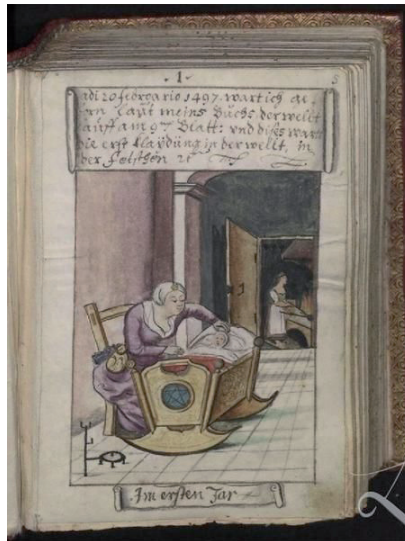 1
adi 20 febrario 1497. wart ich ge„
orn Laut meins Buchs der wellt
auff am 9ten Blatt: und diss wart
die erst klaydung in der wellt, in
der fetschen
Im ersten Jar